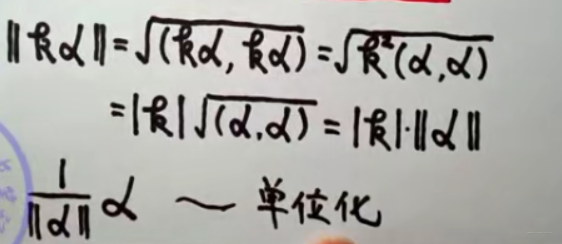 ‖kα‖=√(kα, kα)=√k²(α,α)
=|k|√(α,α)=|k|·‖α‖
1/‖α‖ α ～ 单位化